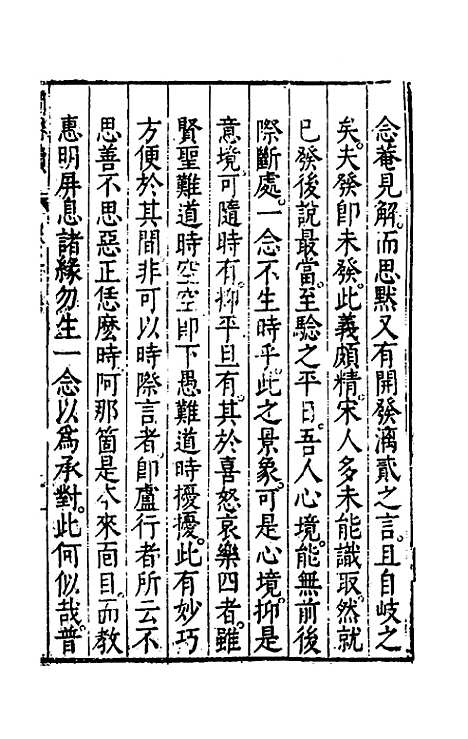 念菴見解。而思默又有開發漏貳之言。且自岐之
矣。夫發卽未發。此義頗精。宋人多未能識取。然就
已發後說最當。至驗之平日。吾人心境。能無前後
際斷處。一念不生時乎。此之景象。可是心境。抑是
意境。可隨時有。抑平旦有。其於喜怒哀樂四者。雖
賢聖難道時空空。卽下愚難道時擾擾。此有妙巧
方便於其間。非可以時際言者。卽盧行者所云不
思善不思惡。正恁麼時。阿那箇是本來面目。而教
惠明屏息諸緣。勿生一念。以爲承對。此何似哉。普